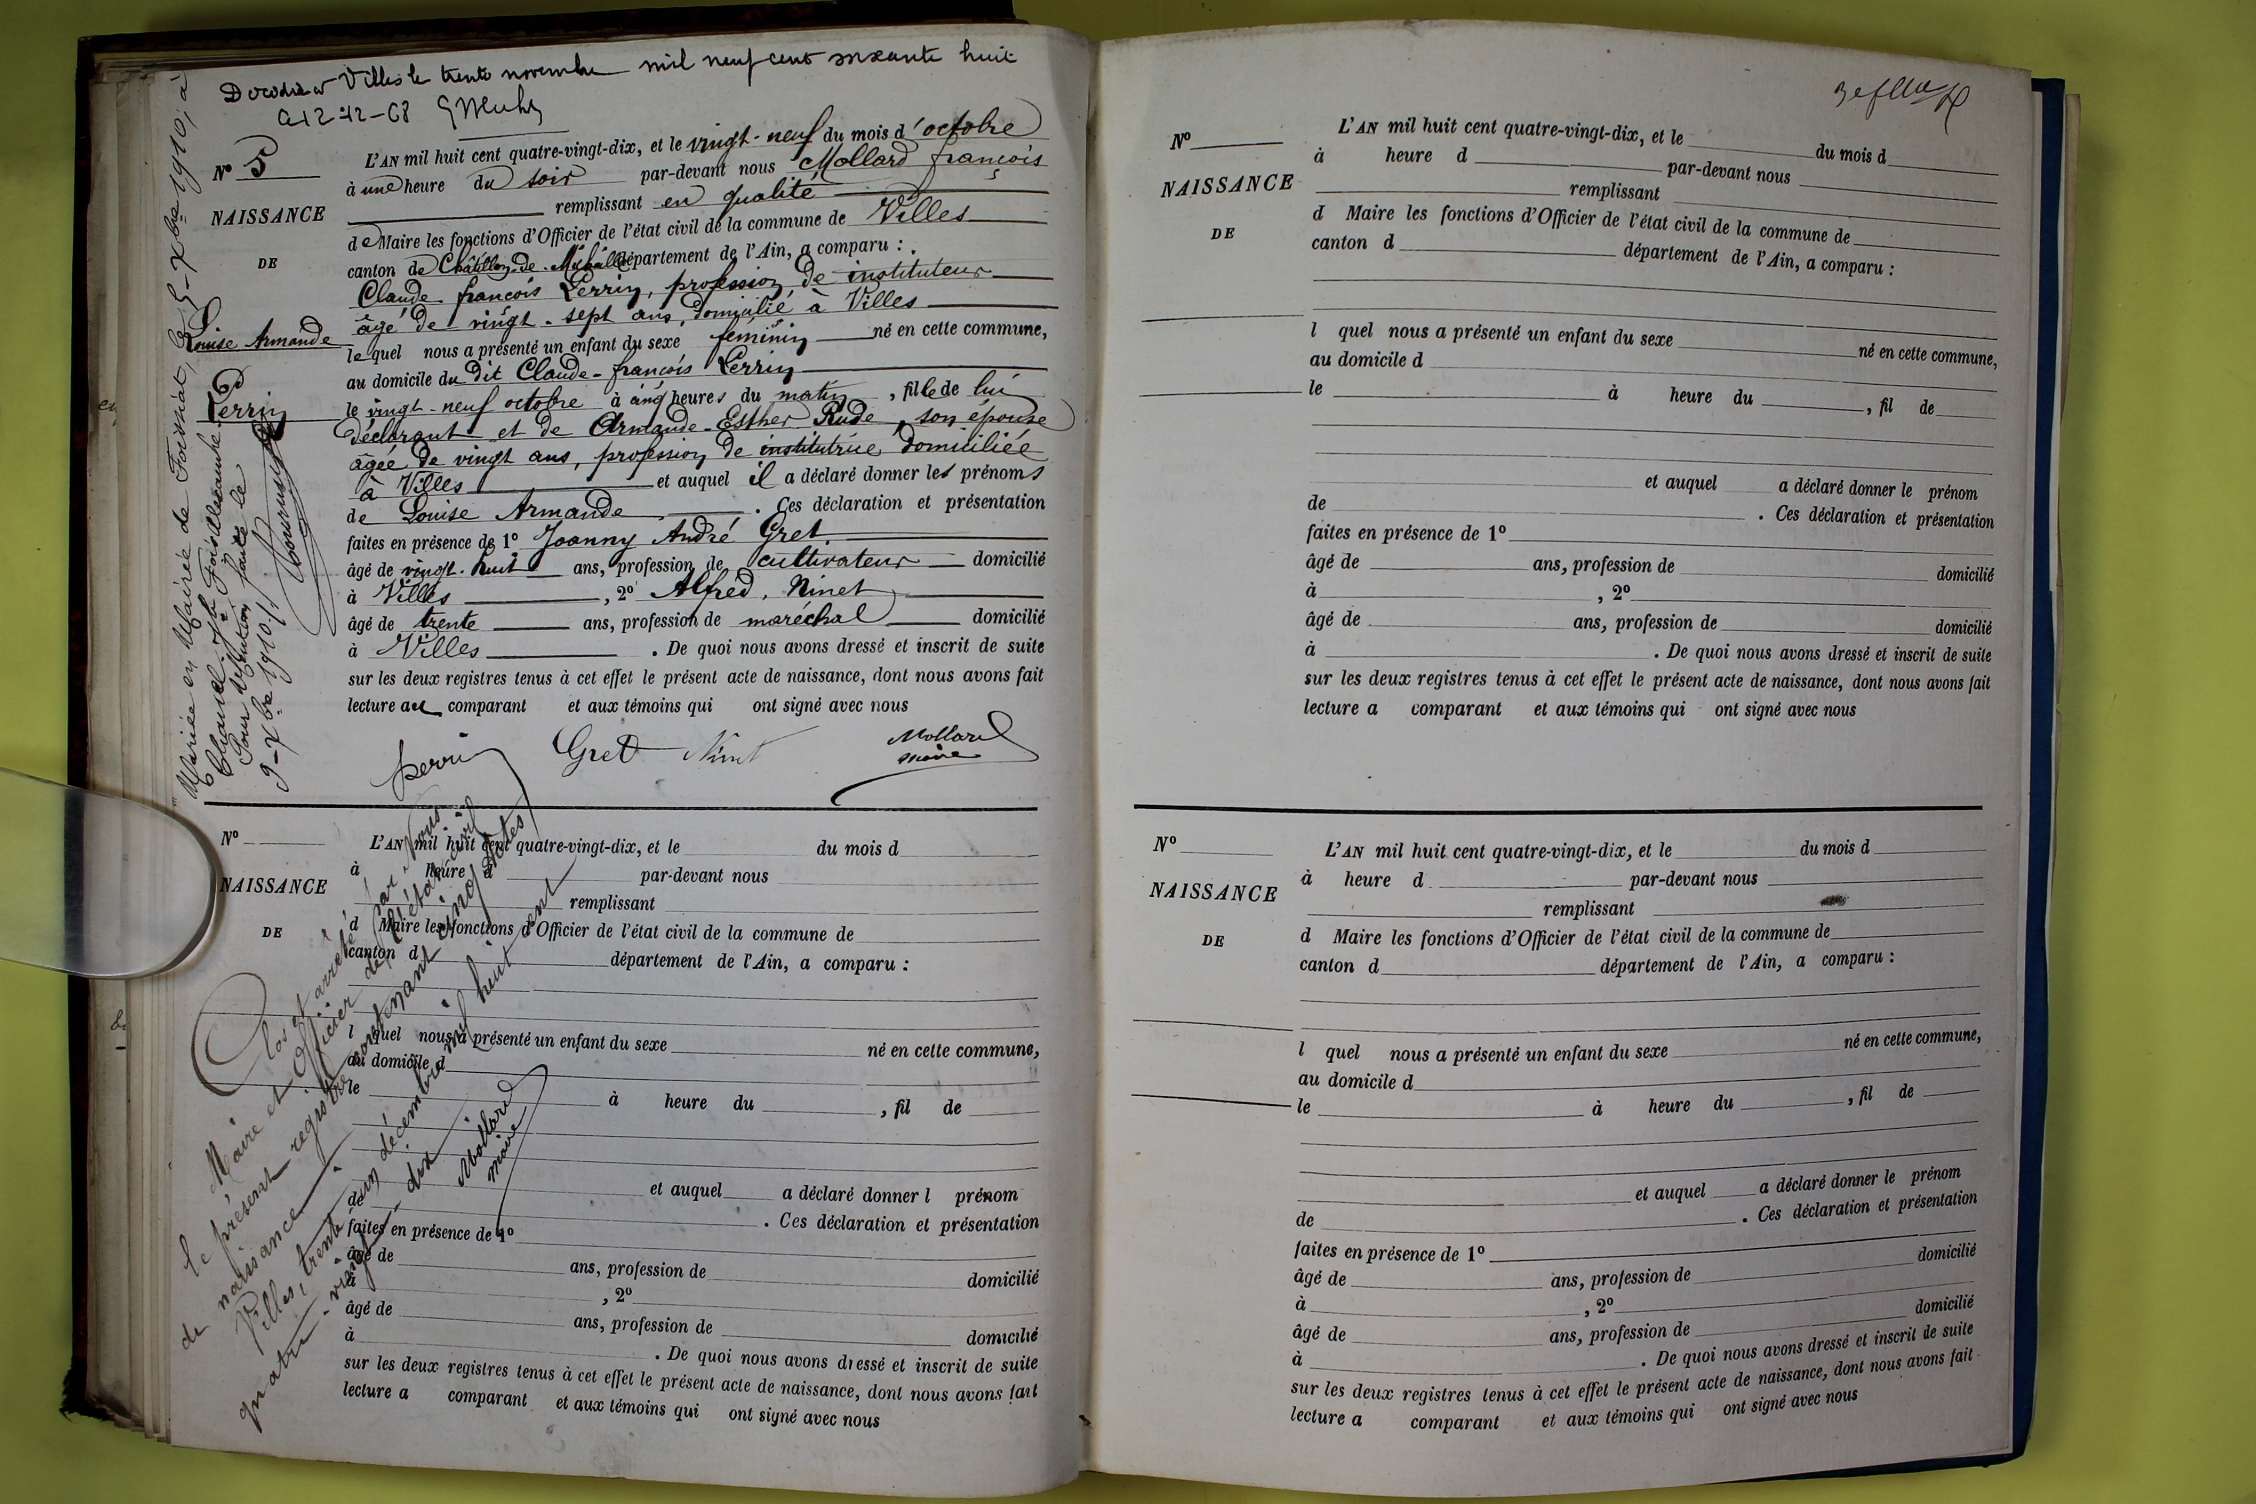 Décédée à Villes le trente novembre mil neuf cent soixante huit
12-12-68
N° 5
NAISSANCE
DE
Louise Armande
Perrin
Mariée en Mairie de Foissiat, le 5 - Xbre 1910, à
9 - Xbre 1910
L'AN mil huit cent quatre-vingt-dix, et le vingt-neuf du mois d'octobre
à une heure du soir par-devant nous Mollard françois
remplissant en qualité
de Maire les fonctions d'Officier de l'état civil de la commune de Villes
canton de Châtillon-de-Michaille département de l'Ain, a comparu :
Claude françois Perrin, profession de instituteur
âgé de vingt-sept ans, domicilié à Villes
lequel nous a présenté un enfant du sexe féminin né en cette commune,
au domicile du dit Claude-françois Perrin
le vingt-neuf octobre à cinq heures du matin, fille de lui
déclarant et de Armande-Esther Rude, son épouse
âgée de vingt ans, profession de institutrice, domiciliée
à Villes et auquel il a déclaré donner les prénoms
de Louise Armande. Ces déclaration et présentation
faites en présence de 1° Joanny André Gret,
âgé de vingt-huit ans, profession de cultivateur domicilié
à Villes, 2° Alfred, Ninet
âgé de trente ans, profession de maréchal domicilié
à Villes. De quoi nous avons dressé et inscrit de suite
sur les deux registres tenus à cet effet le présent acte de naissance, dont nous avons fait
lecture au comparant et aux témoins qui ont signé avec nous
Perrin Gret Ninet Mollard
maire
N°
NAISSANCE
DE
L'AN mil huit cent quatre-vingt-dix, et le du mois d
à heure d par-devant nous
remplissant
d Maire les fonctions d'Officier de l'état civil de la commune de
canton d département de l'Ain, a comparu :
l quel nous a présenté un enfant du sexe né en cette commune,
au domicile d
le à heure du , fil de
et auquel a déclaré donner l prénom
de . Ces déclaration et présentation
faites en présence de 1°
âgé de ans, profession de domicilié
à , 2°
âgé de ans, profession de domicilié
à . De quoi nous avons dressé et inscrit de suite
sur les deux registres tenus à cet effet le présent acte de naissance, dont nous avons fait
lecture a comparant et aux témoins qui ont signé avec nous
Clos et arrêté par Nous
Maire et Officier de l'état civil
le présent registre contenant cinq actes
de naissance
Villes, trente un décembre mil huit cent
quatre-vingt-dix
Mollard
maire
N°
NAISSANCE
DE
L'AN mil huit cent quatre-vingt-dix, et le du mois d
à heure d par-devant nous
remplissant
d Maire les fonctions d'Officier de l'état civil de la commune de
canton d département de l'Ain, a comparu :
l quel nous a présenté un enfant du sexe né en cette commune,
au domicile d
le à heure du , fil de
et auquel a déclaré donner le prénom
de . Ces déclaration et présentation
faites en présence de 1°
âgé de ans, profession de domicilié
à , 2°
âgé de ans, profession de domicilié
à . De quoi nous avons dressé et inscrit de suite
sur les deux registres tenus à cet effet le présent acte de naissance, dont nous avons fait
lecture a comparant et aux témoins qui ont signé avec nous
N°
NAISSANCE
DE
L'AN mil huit cent quatre-vingt-dix, et le du mois d
à heure d par-devant nous
remplissant
d Maire les fonctions d'Officier de l'état civil de la commune de
canton d département de l'Ain, a comparu :
l quel nous a présenté un enfant du sexe né en cette commune,
au domicile d
le à heure du , fil de
et auquel a déclaré donner le prénom
de . Ces déclaration et présentation
faites en présence de 1°
âgé de ans, profession de domicilié
à , 2°
âgé de ans, profession de domicilié
à . De quoi nous avons dressé et inscrit de suite
sur les deux registres tenus à cet effet le présent acte de naissance, dont nous avons fait
lecture a comparant et aux témoins qui ont signé avec nous